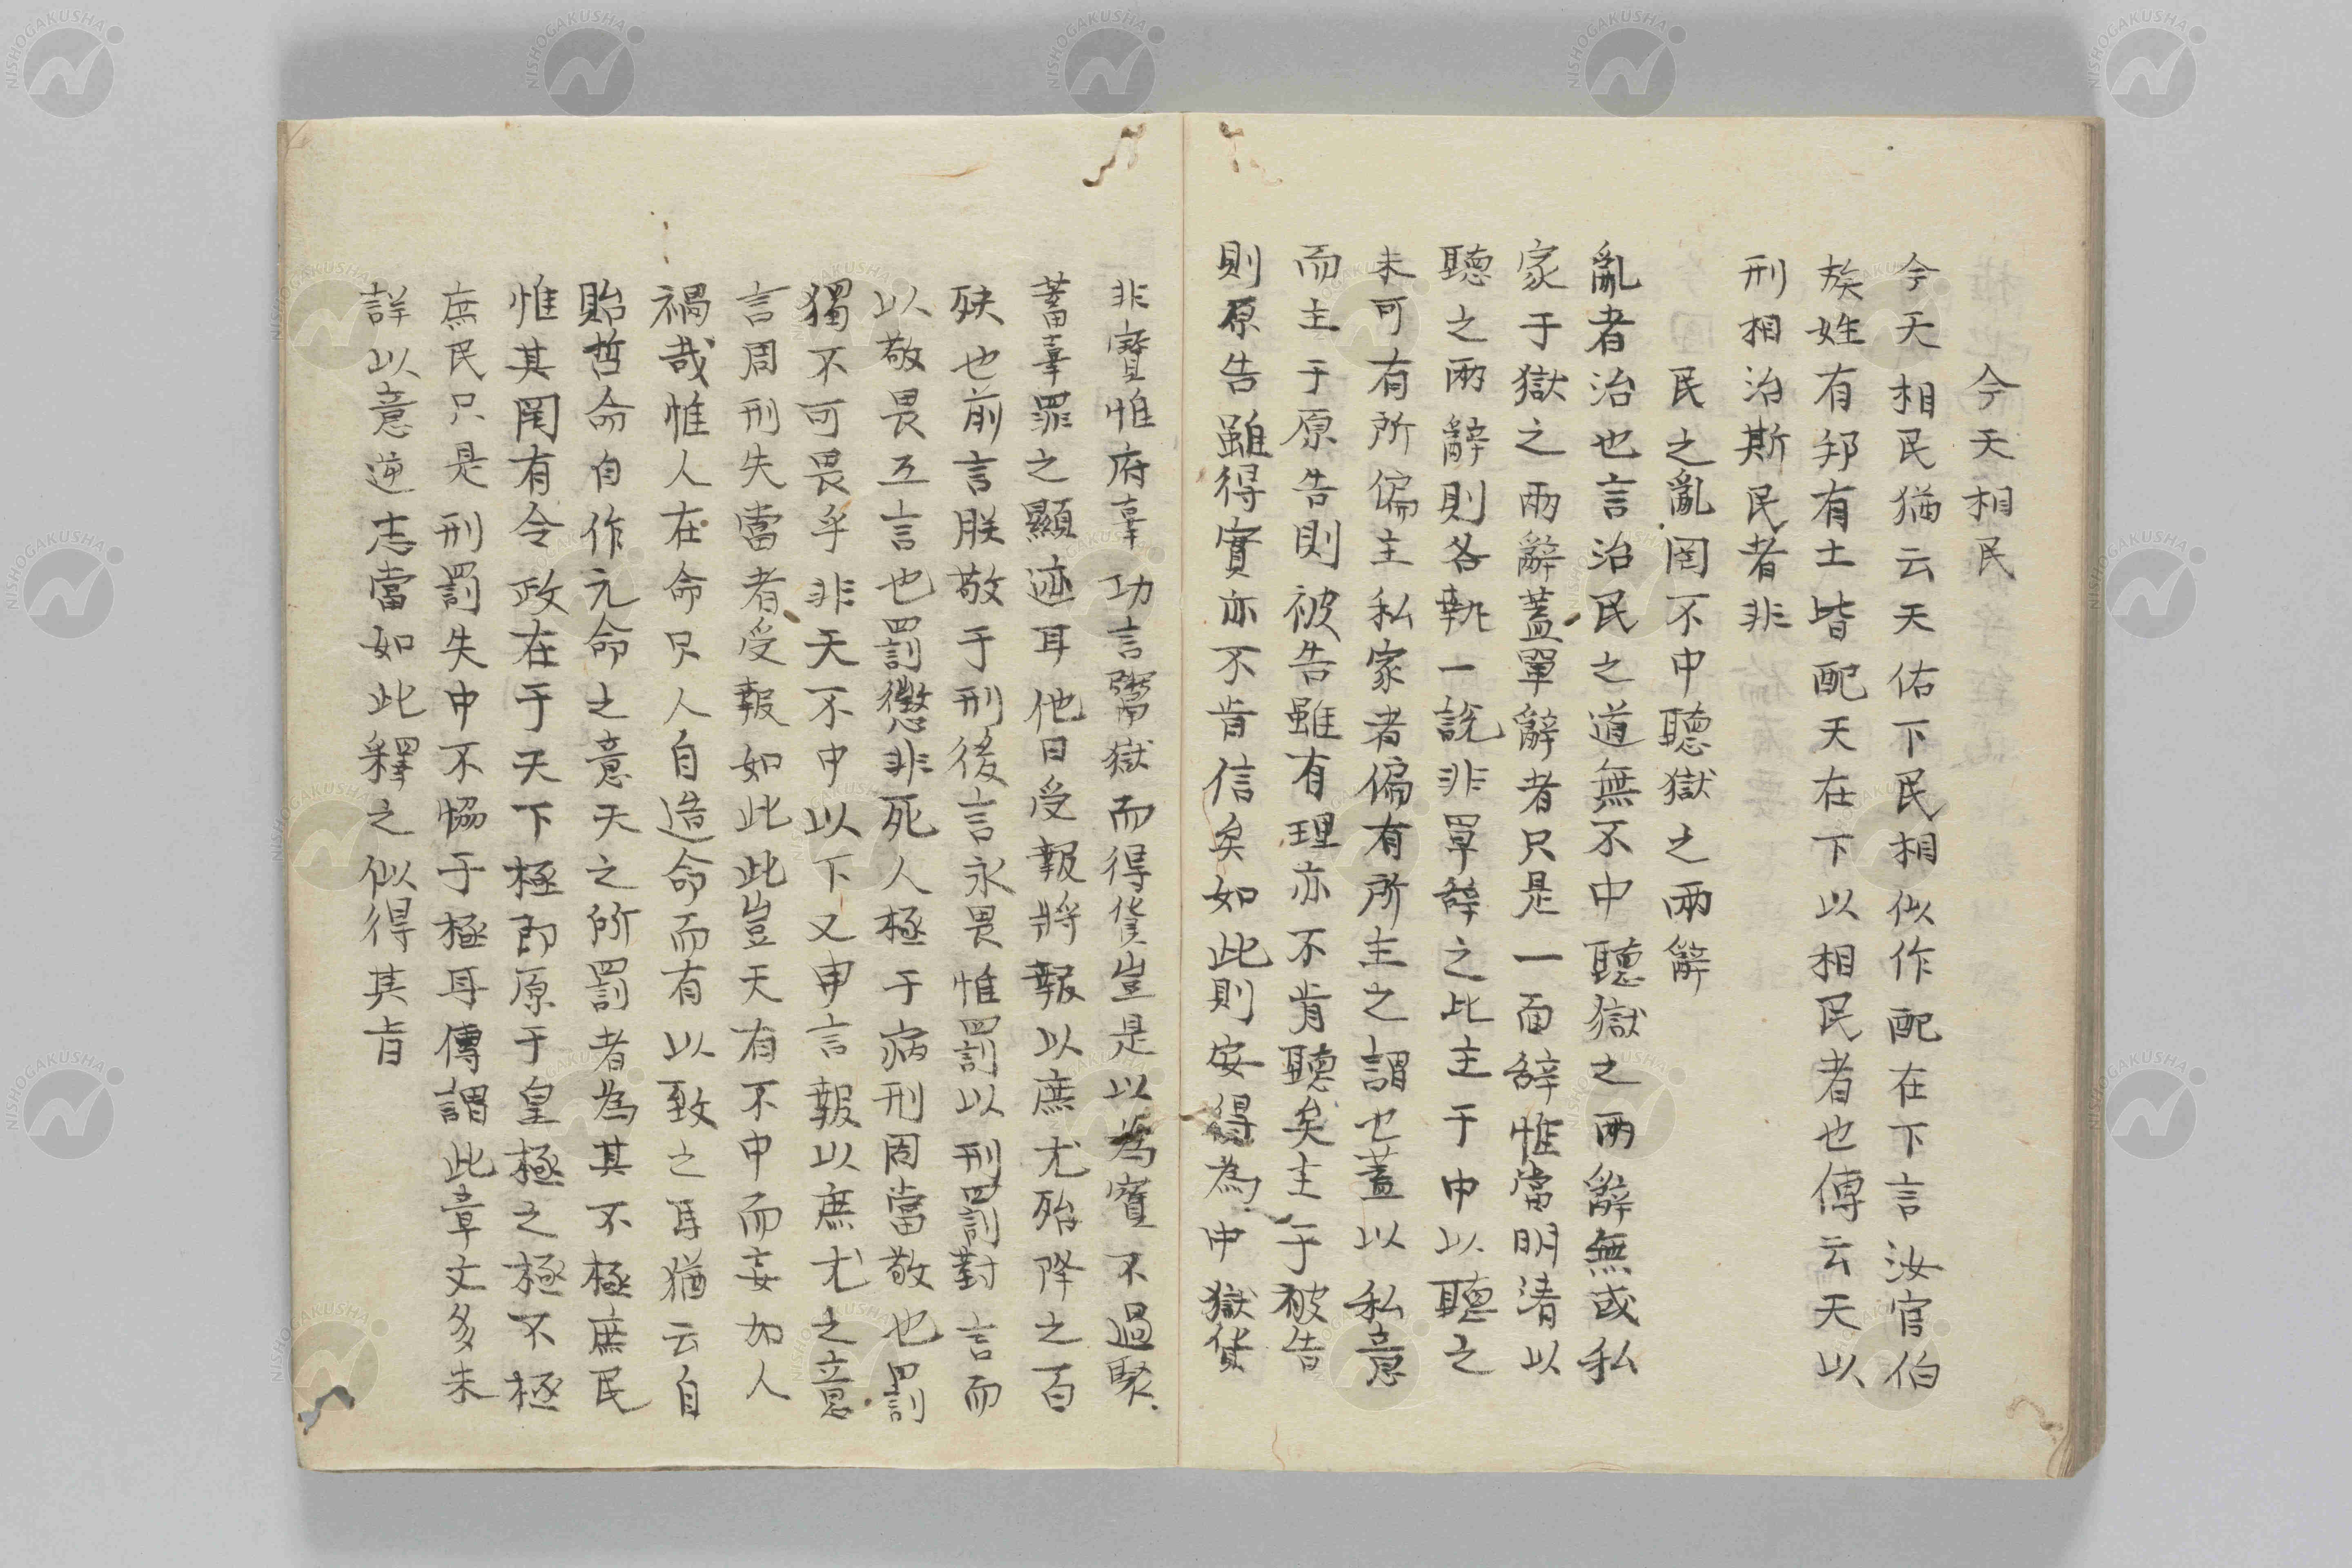 今天相民
今天相民猶云天佑下民相似作配在下言汝官伯
族姓有邦有土皆配天在下以相民者也傳云天以
刑相治斯民者非
民之亂罔不中聽獄之兩辭
亂者治也言治民之道無不中聽獄之兩辭無或私
家于獄之兩辭蓋單辭者只是一面辭惟當明清以
聽之兩辭則各執一說非單辭之比主于中以聽之
未可有所偏主私家者偏有所主之謂也蓋以私意
而主于原告則被告雖有理亦不肯聽矣主于被告
則原告雖得實亦不肯信矣如此則安得為中獄貨
非寶惟府辜功言鬻獄而得貨豈是以為寶不過聚
蓄辜罪之顯迹耳他日受報將報以庶尤殆降之百
殃也前言朕敬于刑後言永畏惟罰以刑罰對言而
以敬畏互言也罰懲非死人極于病刑固當敬也罰
獨不可畏乎非天不中以下又申言報以庶尤之意
言周刑失當者受報如此此豈天有不中而妄加人
禍哉惟人在命只人自造命而有以致之耳猶云自
貽哲命自作元命之意天之所罰者為其不極庶民
惟其罔有令政在于天下極即原于皇極之極不極
庶民只是刑罰失中不恊于極耳傳謂此章文多未
詳以意逆志當如此釋之似得其旨
NISHOGAKUSHA